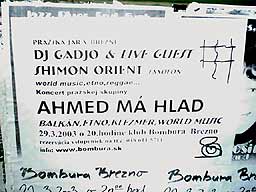 DJ GADJO & LIVE GUEST
SHIMON ORIENT
world music, etno, reggae...
Koncert pražskej skupiny
AHMED MÁ HLAD
BALKÁN, ETNO, KLEZMER, WORLD MUSIC
29.3.2003 o 20.hodine klub Bombura Brezno
rezervácia vstupeniek na
info: www.bombura.sk
Bombura Brezno
Bombura Brezno